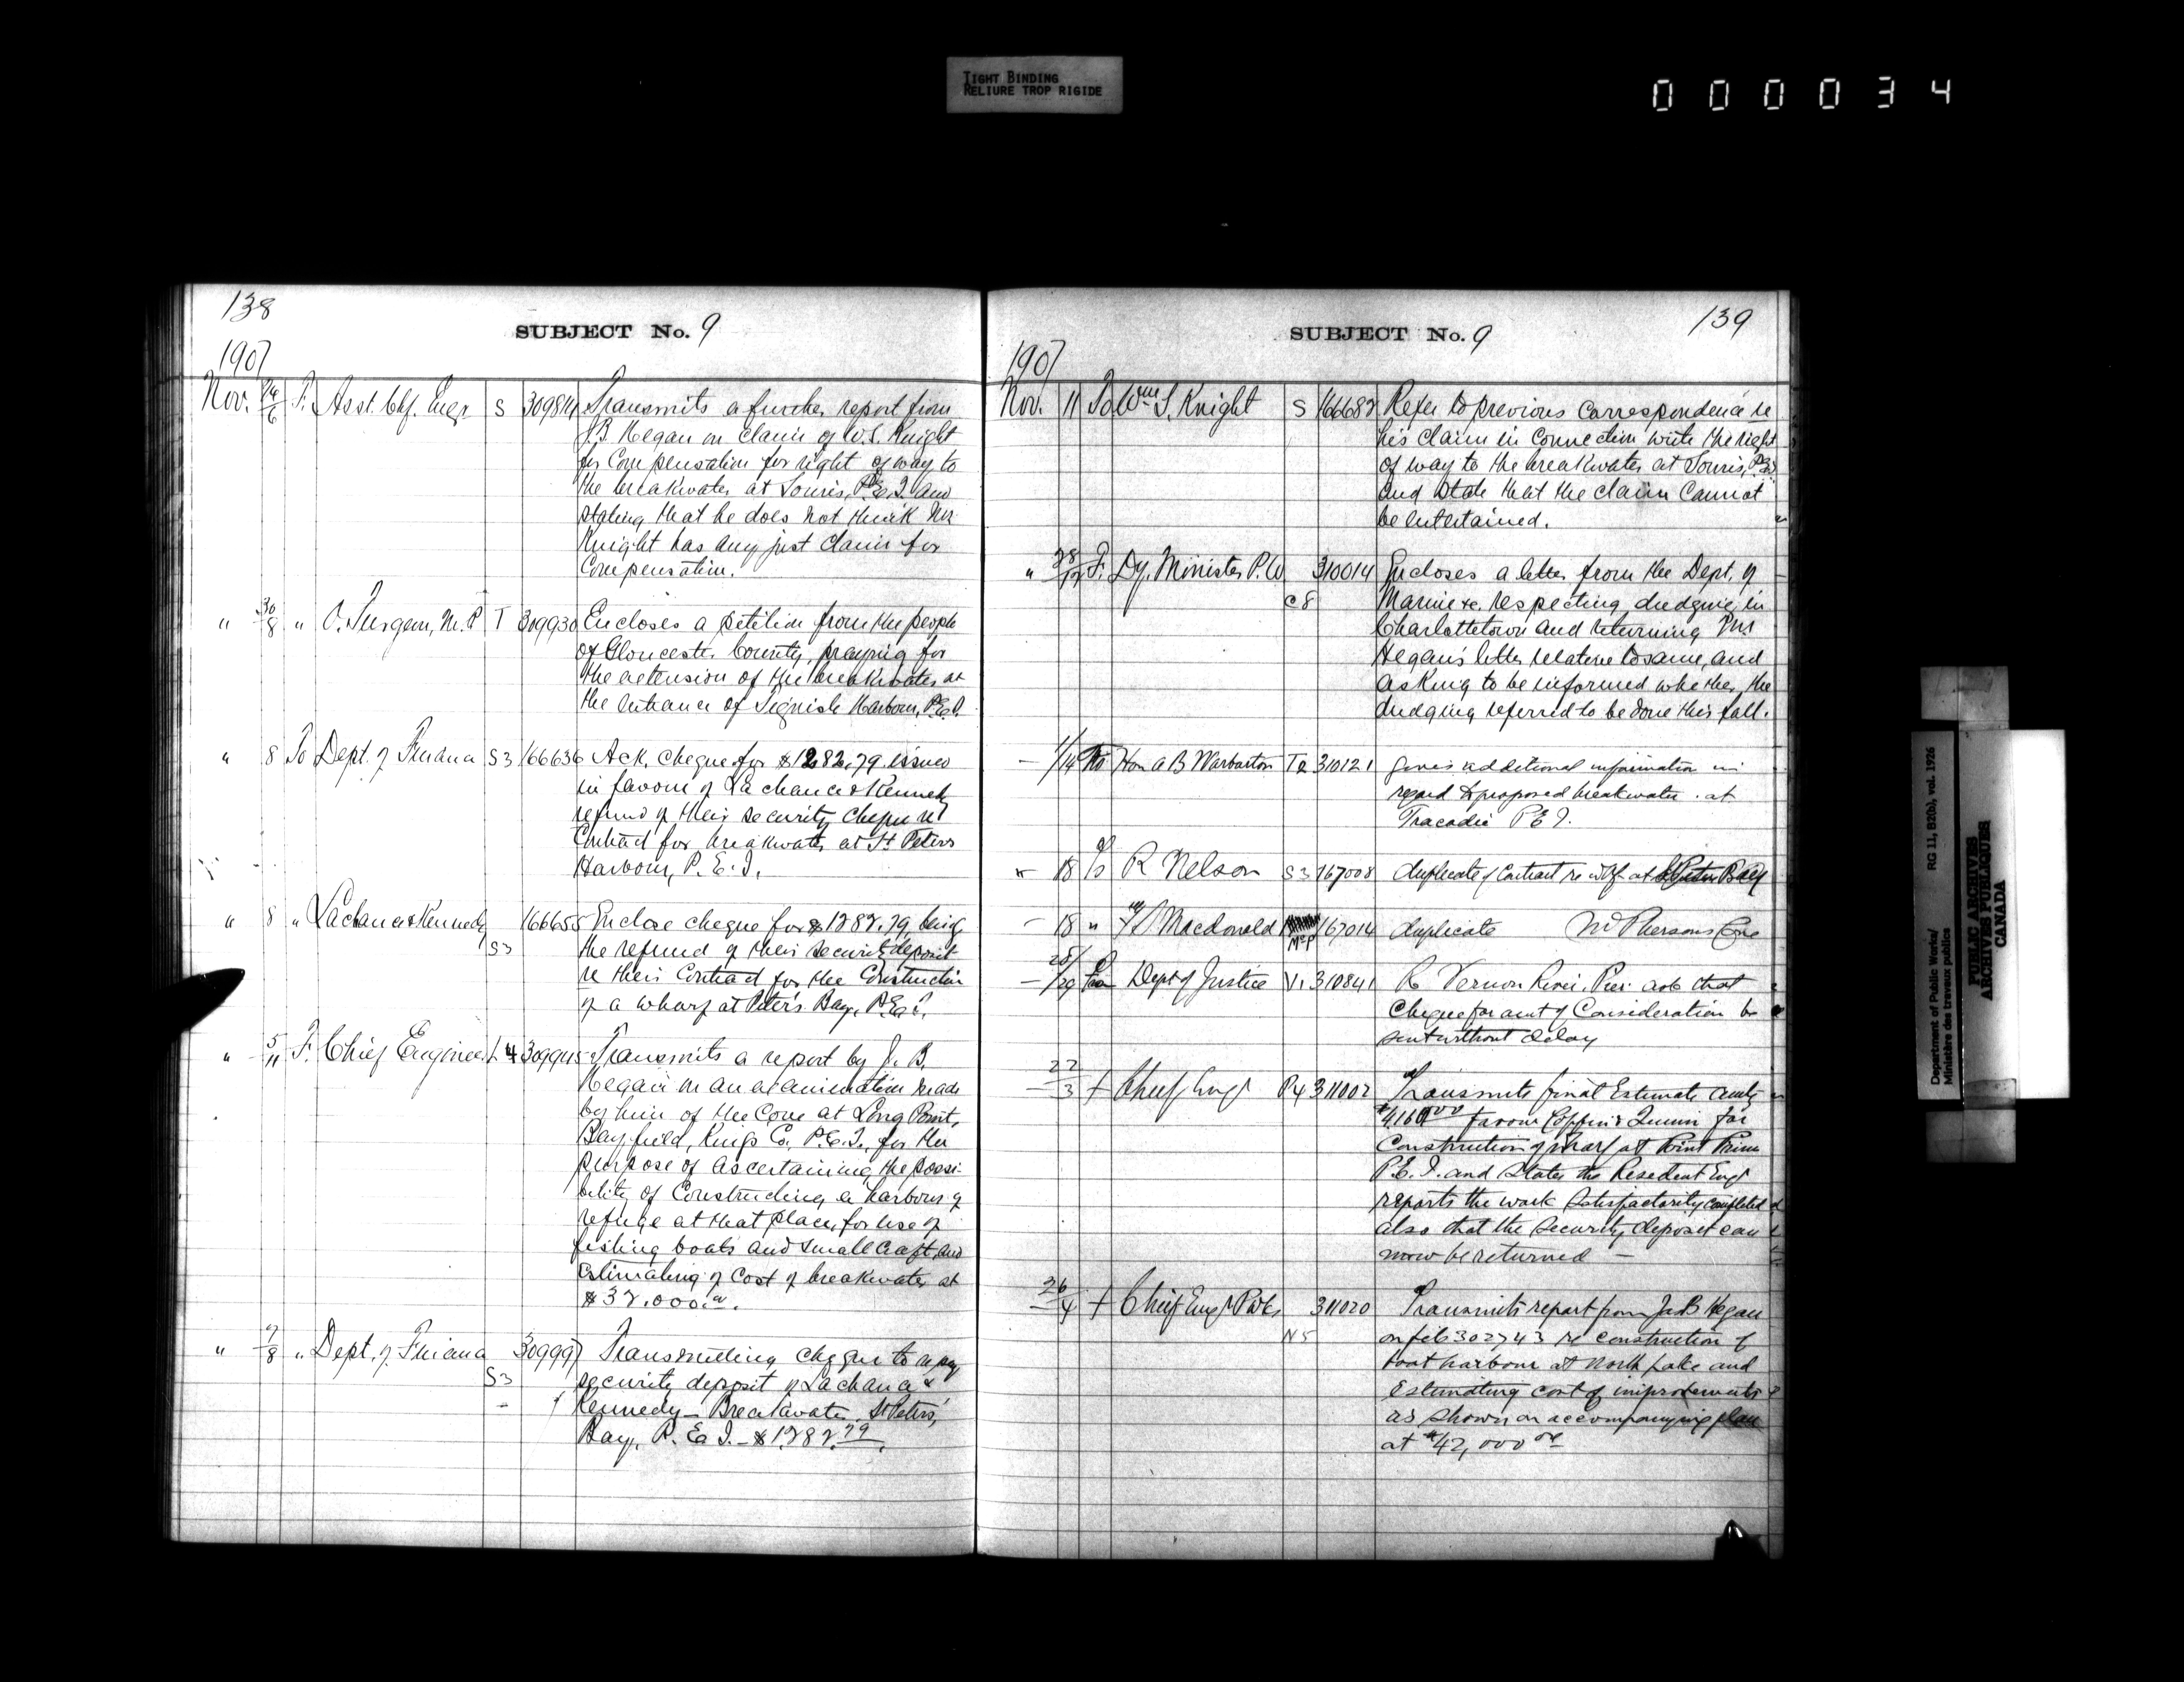 TIGHT BINDING
RELIURE TROP RIGIDE
000034
138
SUBJECT No. 9
1907
Nov. 24/6 F. Asst. Chf. Engr S 309814 Transmits a further report from
J.B. Hegan on claim of W.S. Knight
for Compensation for right of way to
the breakwater at Souris, P.E.I. and
stating that he does not think Mr
Knight has any just claim for
Compensation.
" 30/8 " O. Turgeon, M.P. T 309930 Encloses a petition from the people
of Gloucester County, praying for
the extension of the breakwater at
the entrance of Tignish Harbour, P.E.I.
" 8 To Dept. of Finance S3 166636 Ack. cheque for $1282.79 issued
in favour of Lachance & Kennedy
refund of their security cheque re
Contract for breakwater at St Peters
Harbour, P.E.I.
" 8 " Lachance & Kennedy 166655 Enclose cheque for $1282.79, being
S3 the refund of their security deposit
re their Contract for the Construction
of a wharf at Peter's Bay, P.E.I.
" 5/11 F. Chief Engineer L4 309945 Transmits a report by J.B.
Hegan on an examination made
by him of the Cove at Long Point,
Bayfield, Kings Co. P.E.I., for the
purpose of ascertaining the possi-
bility of Constructing a harbour of
refuge at that place, for use of
fishing boats and small craft and
estimating of Cost of breakwater at
$32.000.00.
" 7/8 " Dept. of Finance 309997 Transmitting cheque to repay
S3 security deposit of Lachance &
Kennedy - Breakwater St Peters'
Bay, P.E.I. - $1282.79.
139
SUBJECT No. 9
1907
Nov. 11 To Wm S. Knight S 166682 Refer to previous correspondence re
his claim in connection with the right
of way to the breakwater at Souris, P.E.I.
and state that the claim cannot
be entertained.
" 28/12 F. Dy. Minister P.W 310014 Encloses a letter from the Dept. of
C8 Marine &c. respecting dredging in
Charlottetown and returning Mr
Hegan's letter relative to same, and
asking to be informed whether the
dredging referred to be done this fall.
- 1/14 Hon A B Warburton T2 310121 gives additional information in
regard to proposed breakwater at
Tracadie P E I.
" 18 To R Nelson S3 167008 duplicate of Contract re wf at St Peters Bay
- 18 " Macdonald McP 167014 duplicate McPhersons Cove
- 28/29 From Dept of Justice V1 310841 R Vernon River Pier ask that
cheque for amt of Consideration be
sent without delay
- 22/3 f Chief Engr P4 311002 Transmits final Estimate amtg
$4160.00 favour Coffin & Quinn for
Construction of wharf at Point Prim
P.E.I. and states the Resident Engr
reports the work satisfactorily completed
also that the security deposit can
now be returned -
- 26/4 f Chief Engr P Wks 311020 Transmits report from Jas B Hegan
N5 on file 302743 re construction of
boat harbour at North Lake and
Estimating cost of improvements
as shown on accompanying plan
at $42,000.00
Department of Public Works/ RG 11, B20(b), vol. 1926
Ministère des travaux publics
PUBLIC ARCHIVES
ARCHIVES PUBLIQUES
CANADA